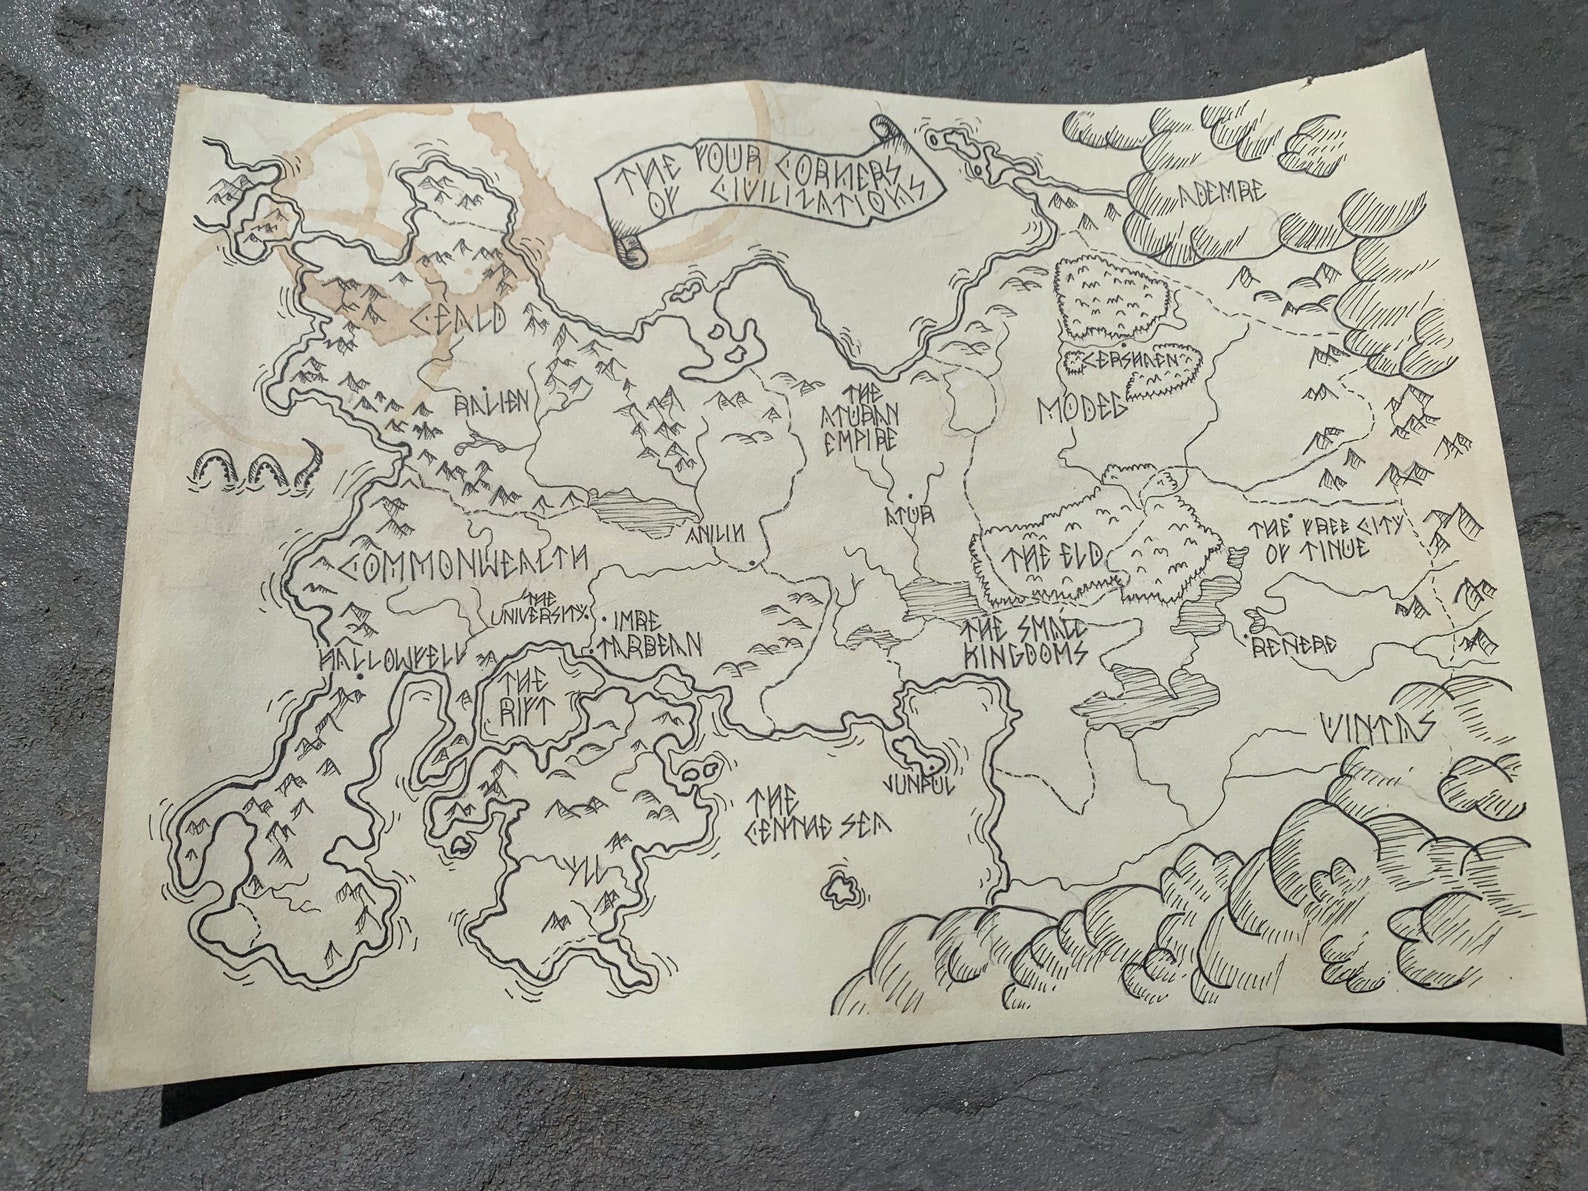 THE FOUR CORNERS
OF CIVILIZATIONS
ADEMRE
CEALD
RALIEN
THE
ATURAN
EMPIRE
CERSHAEN
MODEG
ANILIN
ATUR
THE ELD
THE FREE CITY
OF TINUE
COMMONWEALTH
THE
UNIVERSITY
IMRE
TARBEAN
HALLOWFELL
THE SMALL
KINGDOMS
RENERE
THE
RIFT
VINTAS
JUNPUL
THE
CENTHE SEA
YLL